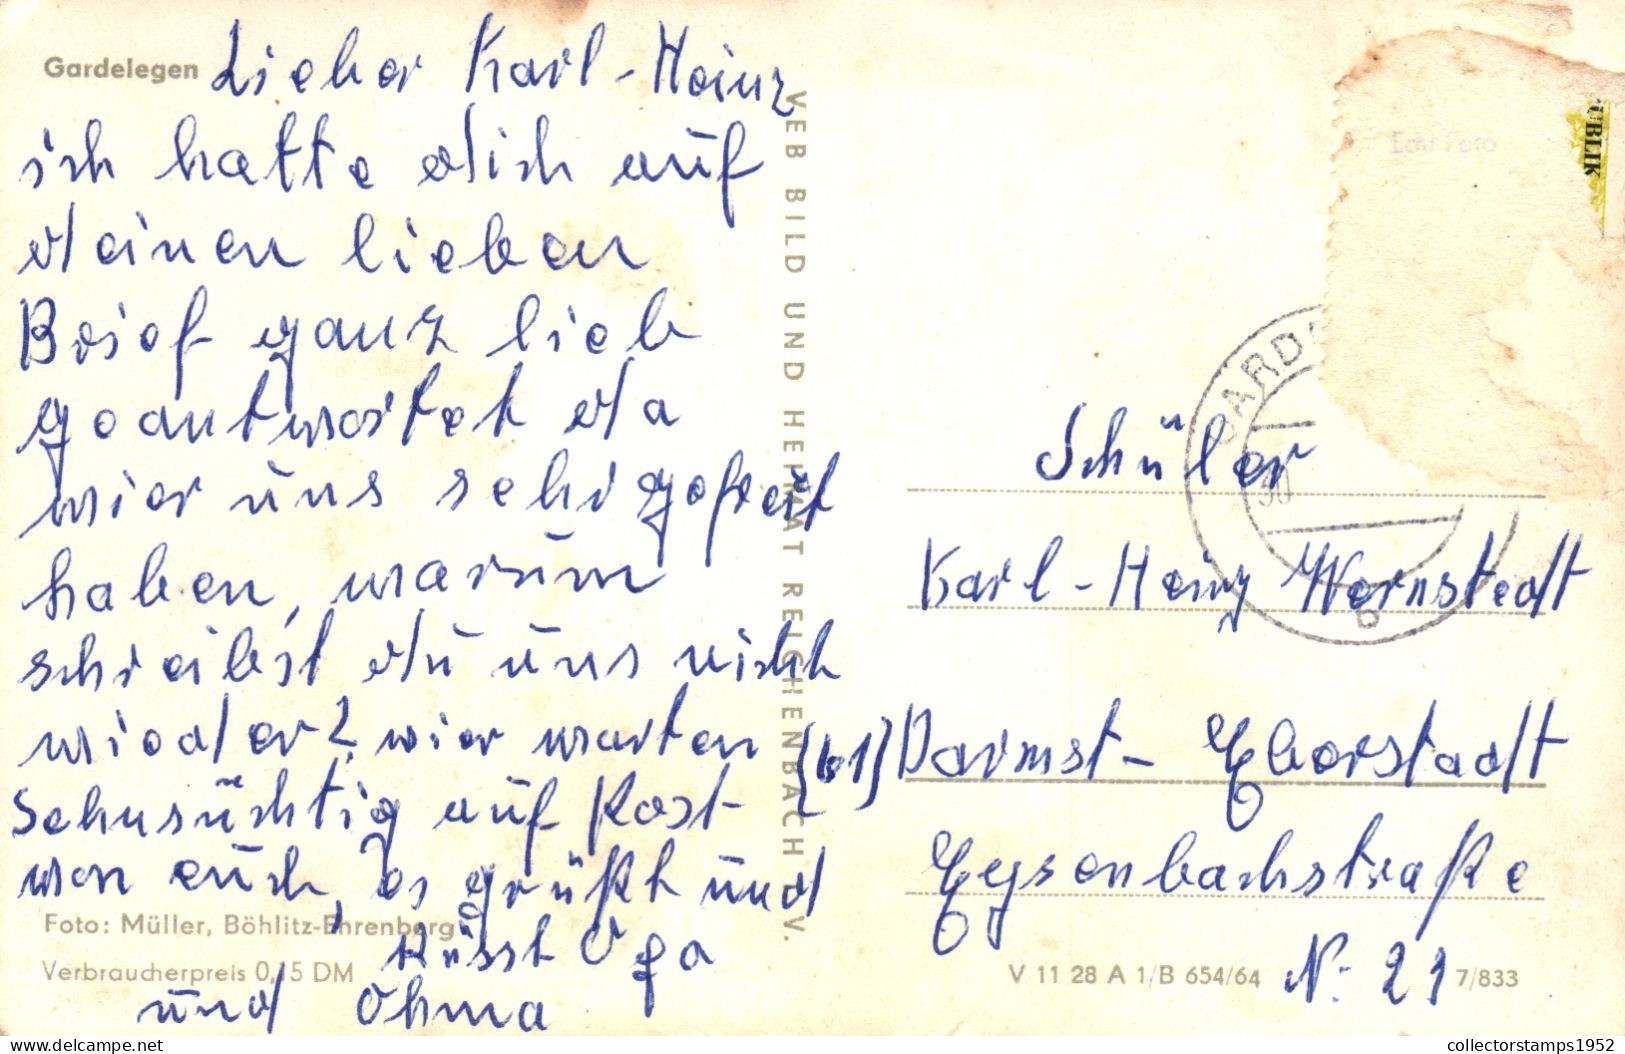 Gardelegen
Lieber Karl-Heinz
ich hatte dich auf
deinen lieben
Brief ganz lieb
geantwortet da
wier uns sehr gefreit
haben, warum
schreibst du uns nicht
wieder? wier warten
Sehnsüchtig auf Post
von euch, es grüßt und
küsst Opa
und Ohma
Foto: Müller, Böhlitz-Ehrenberg
Verbraucherpreis 0,15 DM
VEB BILD UND HEIMAT REICHENBACH i. V.
Echt Foto
UBLIK
GARD
30
B
Schüler
Karl-Heinz Wernstedt
(61) Darmst- Eberstadt
Eysenbachstraße
V 11 28 A 1/B 654/64
Nr. 21
7/833
delcampe.net
collectorstamps1952